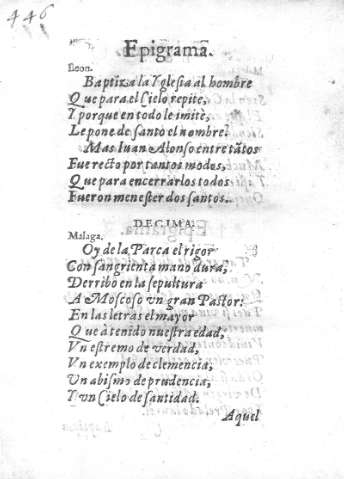 446
Epigrama.
Leon.
Baptiza la Yglesia al hombre
Que para el Cielo repite,
Y porque en todo le imite,
Le pone de santo el nombre:
Mas Iuan Alonso entre tãtos
Fue recto por tantos modos,
Que para encerrarlos todos
Fueron menester dos santos.
DECIMA.
Malaga.
Oy de la Parca el rigor
Con sangrienta mano dura,
Derribo en la sepultura
A Moscoso vn gran Pastor:
En las letras el mayor
Que à tenido nuestra edad,
Vn estremo de verdad,
Vn exemplo de clemencia,
Un abismo de prudencia,
Y vn Cielo de santidad.
Aquel